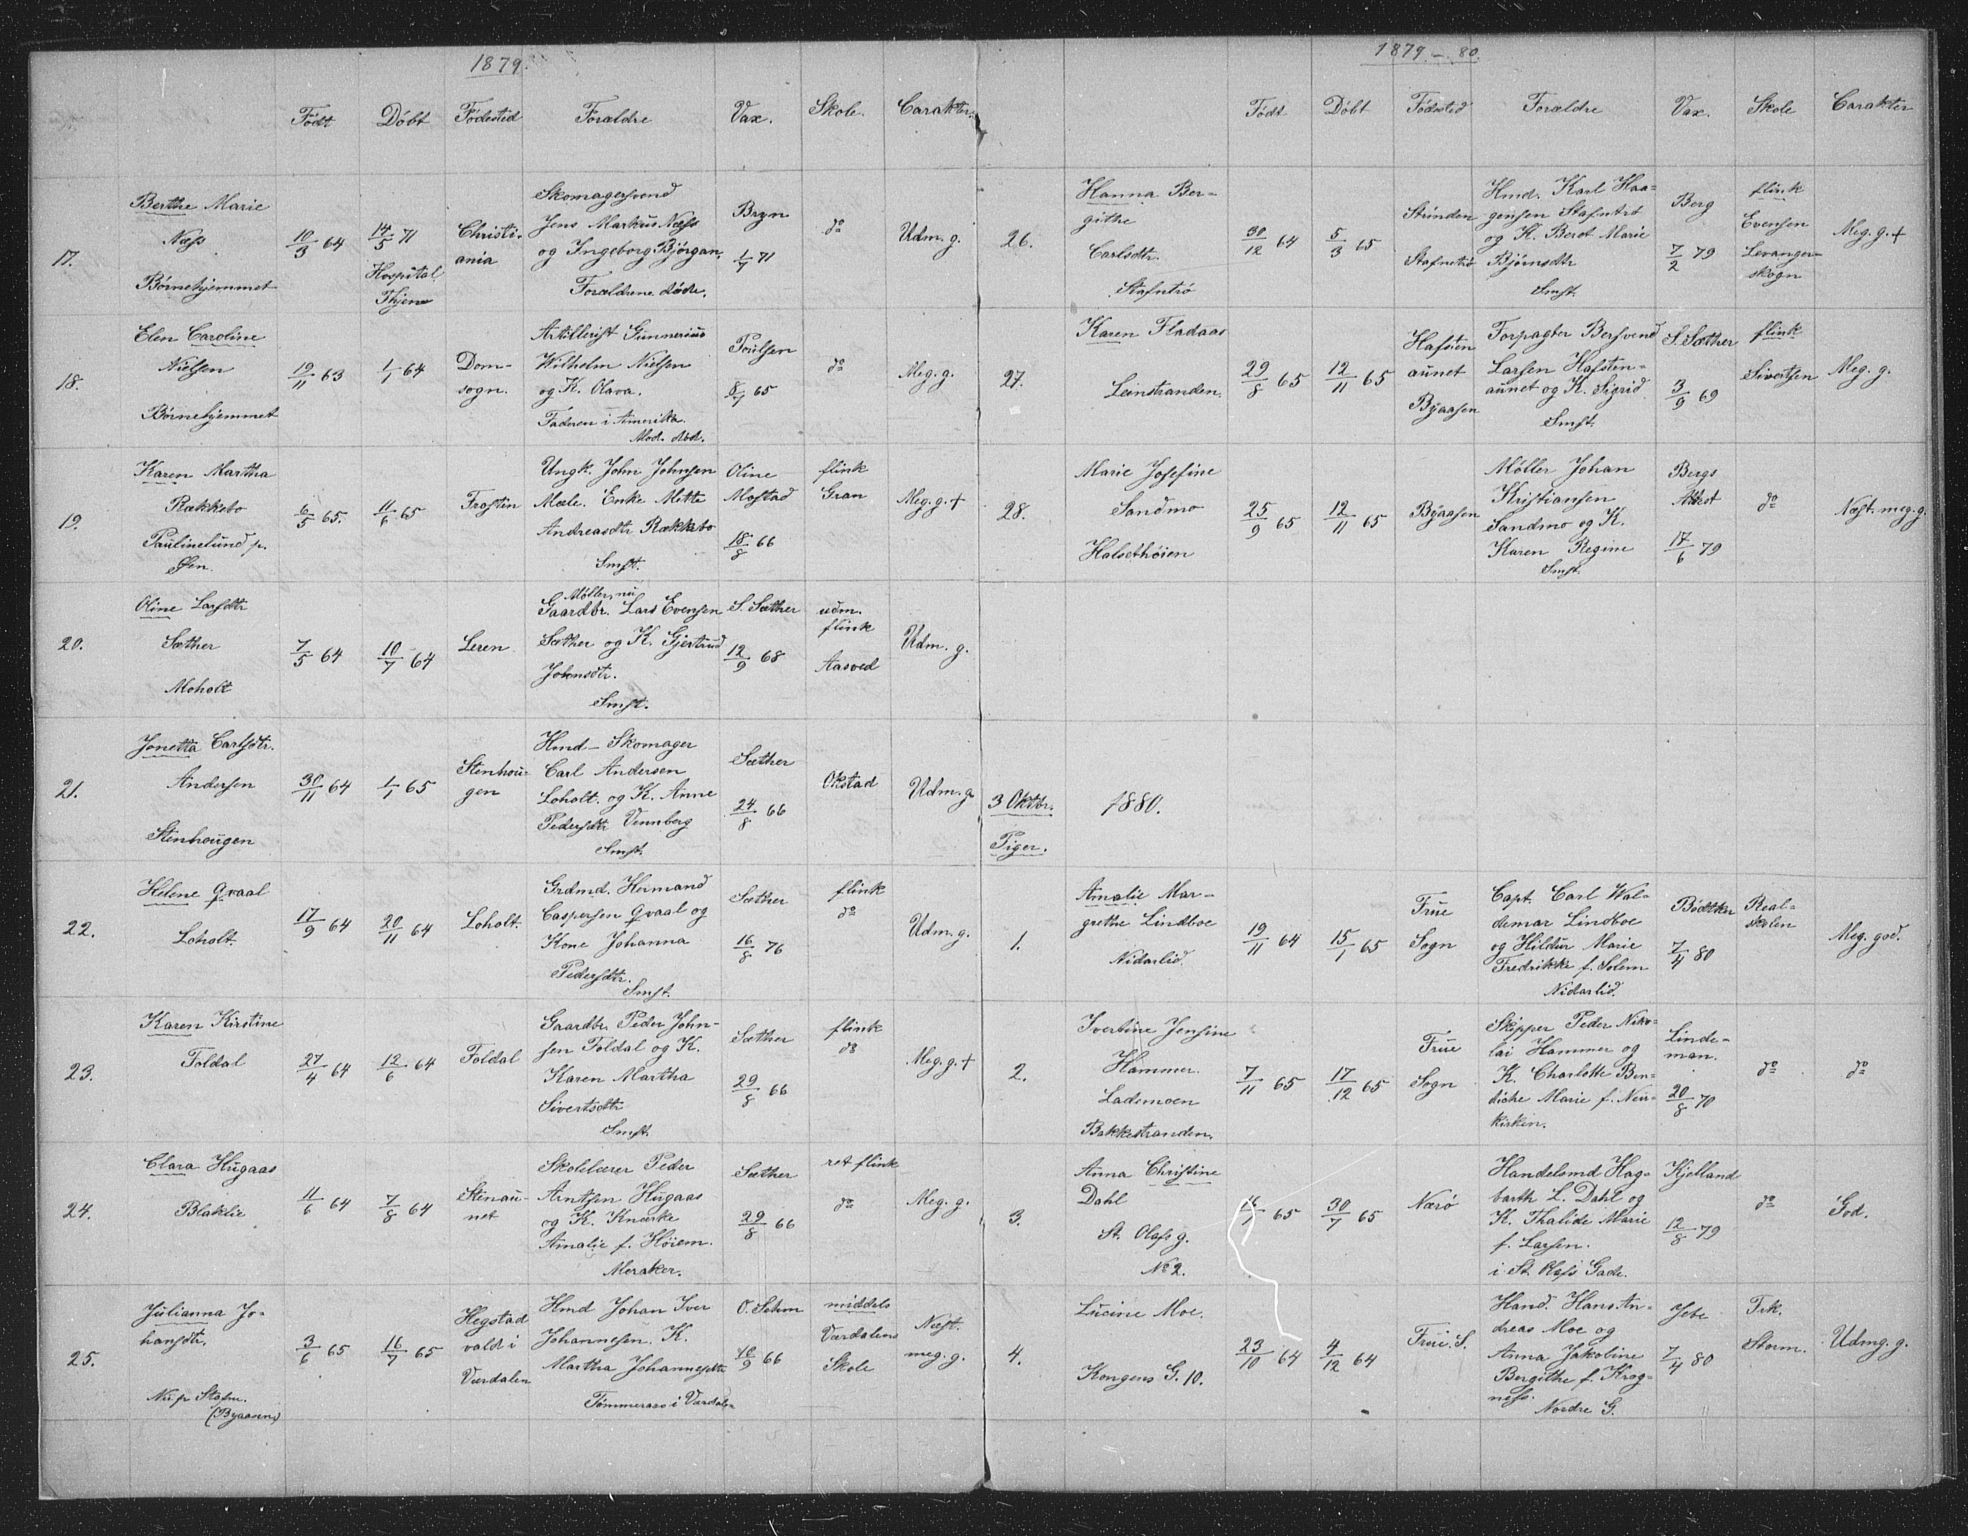 1879.
Født Døbt Fødested Forældre Vax. Skole. Carakter.
17.
Berthe Marie
Næss
Børnehjemmet
10/3 64
14/5 71
Hospital
Christi-
ania
Skomagersvend
Jens Markus Næss
og Ingeborg Bjørgan.
Forældrene døde.
Bryn
1/7 71
do
Udm. g.
18.
Elen Caroline
Nielsen
Børnehjemmet
19/11 63
1/1 64
Dom-
sogn.
Artillerist Gunnerius
Wilhelm Nielsen
og K. Olava.
Faderen i Amerika.
Mod. død.
Poulsen
8/1 65
do
Meg. g.
19.
Karen Martha
Rækkebo
Paulinelund p.
Øen.
6/5 65.
11/6 65
Frosten
Ungk. John Johnsen
Mæle. Enke Mette
Andreasdtr Rækkebo
Smst.
Oline
Mostad
18/8 66
flink
Gran
Meg. g. +
20.
Oline Larsdtr
Sæther
Moholt
7/5 64
10/7 64
Leren
Møller, nu
Gaardbr. Lars Evensen
Sæther og K. Gjertrud
Johnsdtr.
Smst.
S. Sæther
12/9 68
udm.
flink
Aasved
Udm. g.
21.
Jonetta Carlsdtr.
Andersen
Stenhougen
30/11 64
1/1 65
Stenhou-
gen
Hmd - Skomager
Carl Andersen
Loholt. og K. Anne
Pedersdtr Vennberg
Smst.
Sæther
24/8 66
Okstad
Udm. g.
22.
Helene Qvaal
Loholt.
17/9 64
20/11 64
Loholt.
Grdmd. Hermand
Caspersen Qvaal og
Kone Johanna
Pedersdtr.
Smst.
Sæther
16/8 76
flink
do
Udm. g.
23.
Karen Kirstine
Foldal
27/4 64
12/6 64
Foldal
Gaardbr. Peder John-
sen Foldal og K.
Karen Martha
Sivertsdtr
Smst.
Sæther
29/8 66
flink
do
Meg. g. +
24.
Clara Hugaas
Blaklie
11/6 64
7/8 64
Stenau-
net
Skolelærer Peder
Arntsen Hugaas
og K.
Amalie f. Høiem.
Meraker.
Sæther
29/8 66
ret flink
do
Meg. g.
25.
Julianna Jo-
hansdtr.
Nu p Stafne.
(Byaasen)
3/6 65
16/7 65
Hegstad
vald i
Værdalen
Hmd Johan Iver
Johannesen. K.
Martha Johannesdtr
Tømmeraas i Værdalen
O. Sehm
10/9 66
middels
Værdalens
Skole
Næst.
meg. g.
1879 - 80.
Født Døbt Fødested Forældre Vax. Skole Carakter
26.
Hanna Ber-
githe
Carlsdtr.
Stafntrø
30/12 64
5/3 65
Strinden
Stafnetrø
Hmd. Karl Haa-
gensen Stafntrø
og K. Beret Marie
Bjørnsdtr
Smst.
Berg
7/2 79
flink
Evensen
Levanger-
skogn
Meg. g. +
27.
Karen Fladaas
Leinstranden.
29/8 65
12/11 65
Hafsten
aunet
Byaasen
Forpagter Bersvend
Larsen Hafsten-
aunet og K. Sigrid.
Smst.
S. Sæther
3/9 69
flink
Sivertsen
Meg. g.
28.
Marie Josefine
Sandmo
Halsethøien
25/9 65
12/11 65
Byaasen
Møller Johan
Kristiansen
Sandmo og K.
Karen Regine
Smst.
Bergs
Attest
17/6 79
do
Næst. meg. g.
3 Oktbr. 1880.
Piger.
1.
Amalie Mar-
grethe Lindboe
Nidarlid.
19/11 64
15/1 65
Frue
Sogn
Capt. Carl Wal-
demar Lindboe
og Hildur Marie
Fredrikke f. Solem
Nidarlid.
Bødtker
7/4 80
Real-
skolen
Meg. god.
2.
Ivertine Jensine
Hammer.
Lademoen
Bakkestranden.
7/11 65
17/12 65
Frue
Sogn
Skipper Peder Niko-
lai Hammer og
K. Charlotte Ben-
dicke Marie f. Neu-
kirken.
Linde-
man.
20/8 70
do
do
3.
Anna Christine
Dahl
St. Olafs g.
No 2.
65
30/7 65
Nærø
Handelsmd Hag-
barth L. Dahl og
K. Thalide Marie
f. Larsen.
i St. Olafs Gade.
Kjelland
12/8 79
do
God.
4.
Lucine Moe.
Kongens G. 10.
23/10 64
4/12 64
Frue. S.
Hand. Hans An-
dreas Moe og
Anna Jakobine
Bergithe f. Krog-
ness.
Nordre G.
7/4 80
Storm.
Udmg. g.